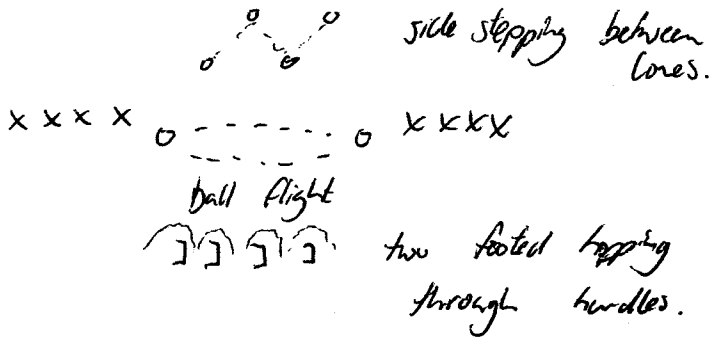 side stepping between
Cones.
x x x x
x x x x
ball flight
two footed hopping
through hurdles.